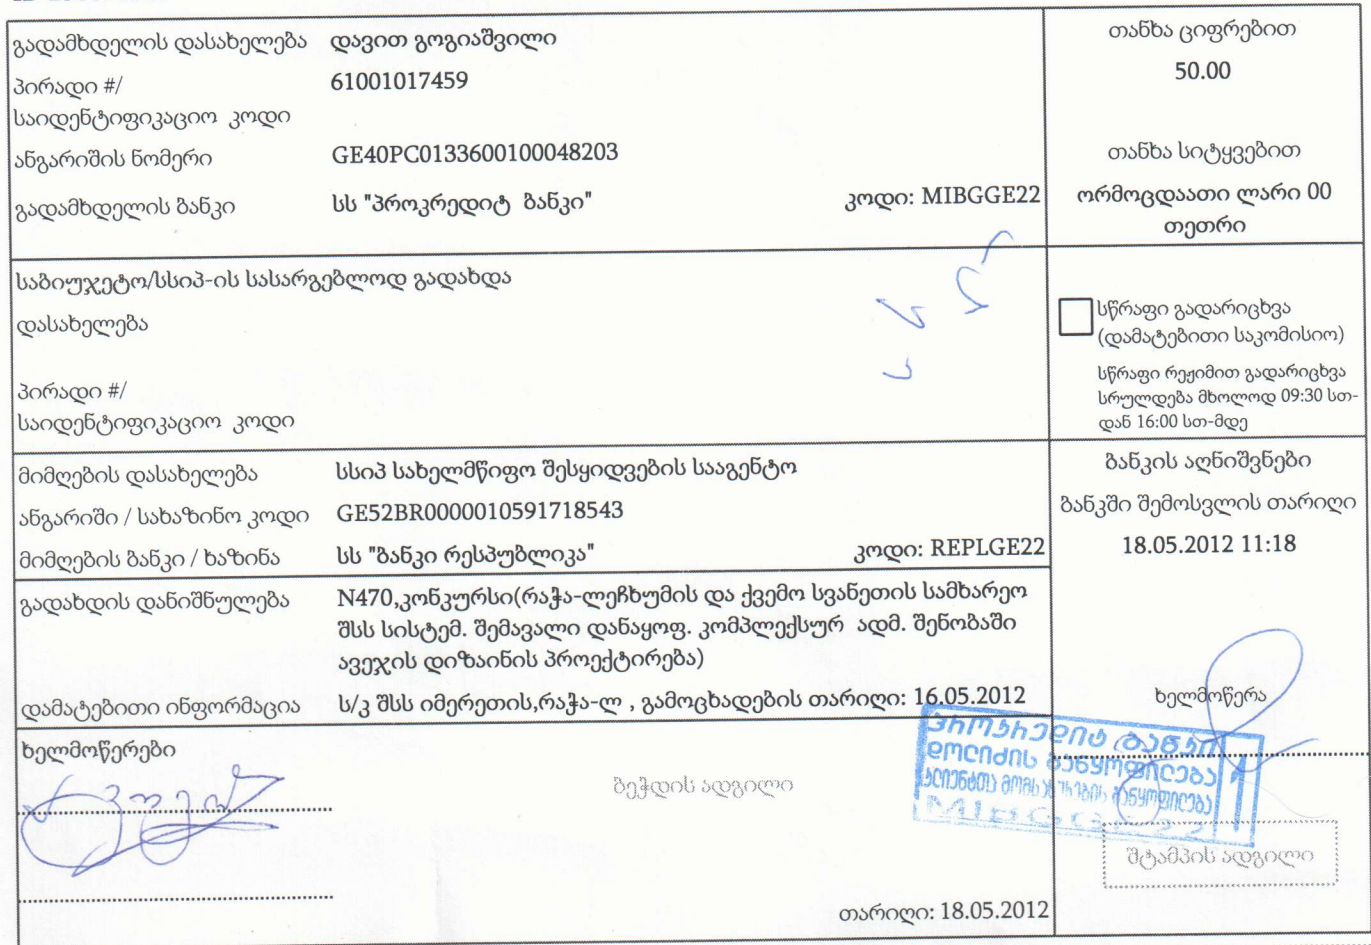 გადამხდელის დასახელება დავით გოგიაშვილი
პირადი #/ 61001017459
საიდენტიფიკაციო კოდი
ანგარიშის ნომერი GE40PC0133600100048203
გადამხდელის ბანკი სს "პროკრედიტ ბანკი" კოდი: MIBGGE22
თანხა ციფრებით
50.00
თანხა სიტყვებით
ორმოცდაათი ლარი 00
თეთრი
საბიუჯეტო/სსიპ-ის სასარგებლოდ გადახდა
დასახელება
პირადი #/
საიდენტიფიკაციო კოდი
სწრაფი გადარიცხვა
(დამატებითი საკომისიო)
სწრაფი რეჟიმით გადარიცხვა
სრულდება მხოლოდ 09:30 სთ-
დან 16:00 სთ-მდე
მიმღების დასახელება სსიპ სახელმწიფო შესყიდვების სააგენტო
ანგარიში / სახაზინო კოდი GE52BR0000010591718543
მიმღების ბანკი / ხაზინა სს "ბანკი რესპუბლიკა" კოდი: REPLGE22
გადახდის დანიშნულება N470,კონკურსი(რაჭა-ლეჩხუმის და ქვემო სვანეთის სამხარეო
შსს სისტემ. შემავალი დანაყოფ. კომპლექსურ ადმ. შენობაში
ავეჯის დიზაინის პროექტირება)
დამატებითი ინფორმაცია ს/კ შსს იმერეთის,რაჭა-ლ , გამოცხადების თარიღი: 16.05.2012
ბანკის აღნიშვნები
ბანკში შემოსვლის თარიღი
18.05.2012 11:18
ხელმოწერა
ხელმოწერები
ბეჭდის ადგილი
პროკრედიტ ბანკი
დოლიძის განყოფილება
კლიენტთა მომსახურების განყოფილება
MIBGGE22
1
შტამპის ადგილი
თარიღი: 18.05.2012